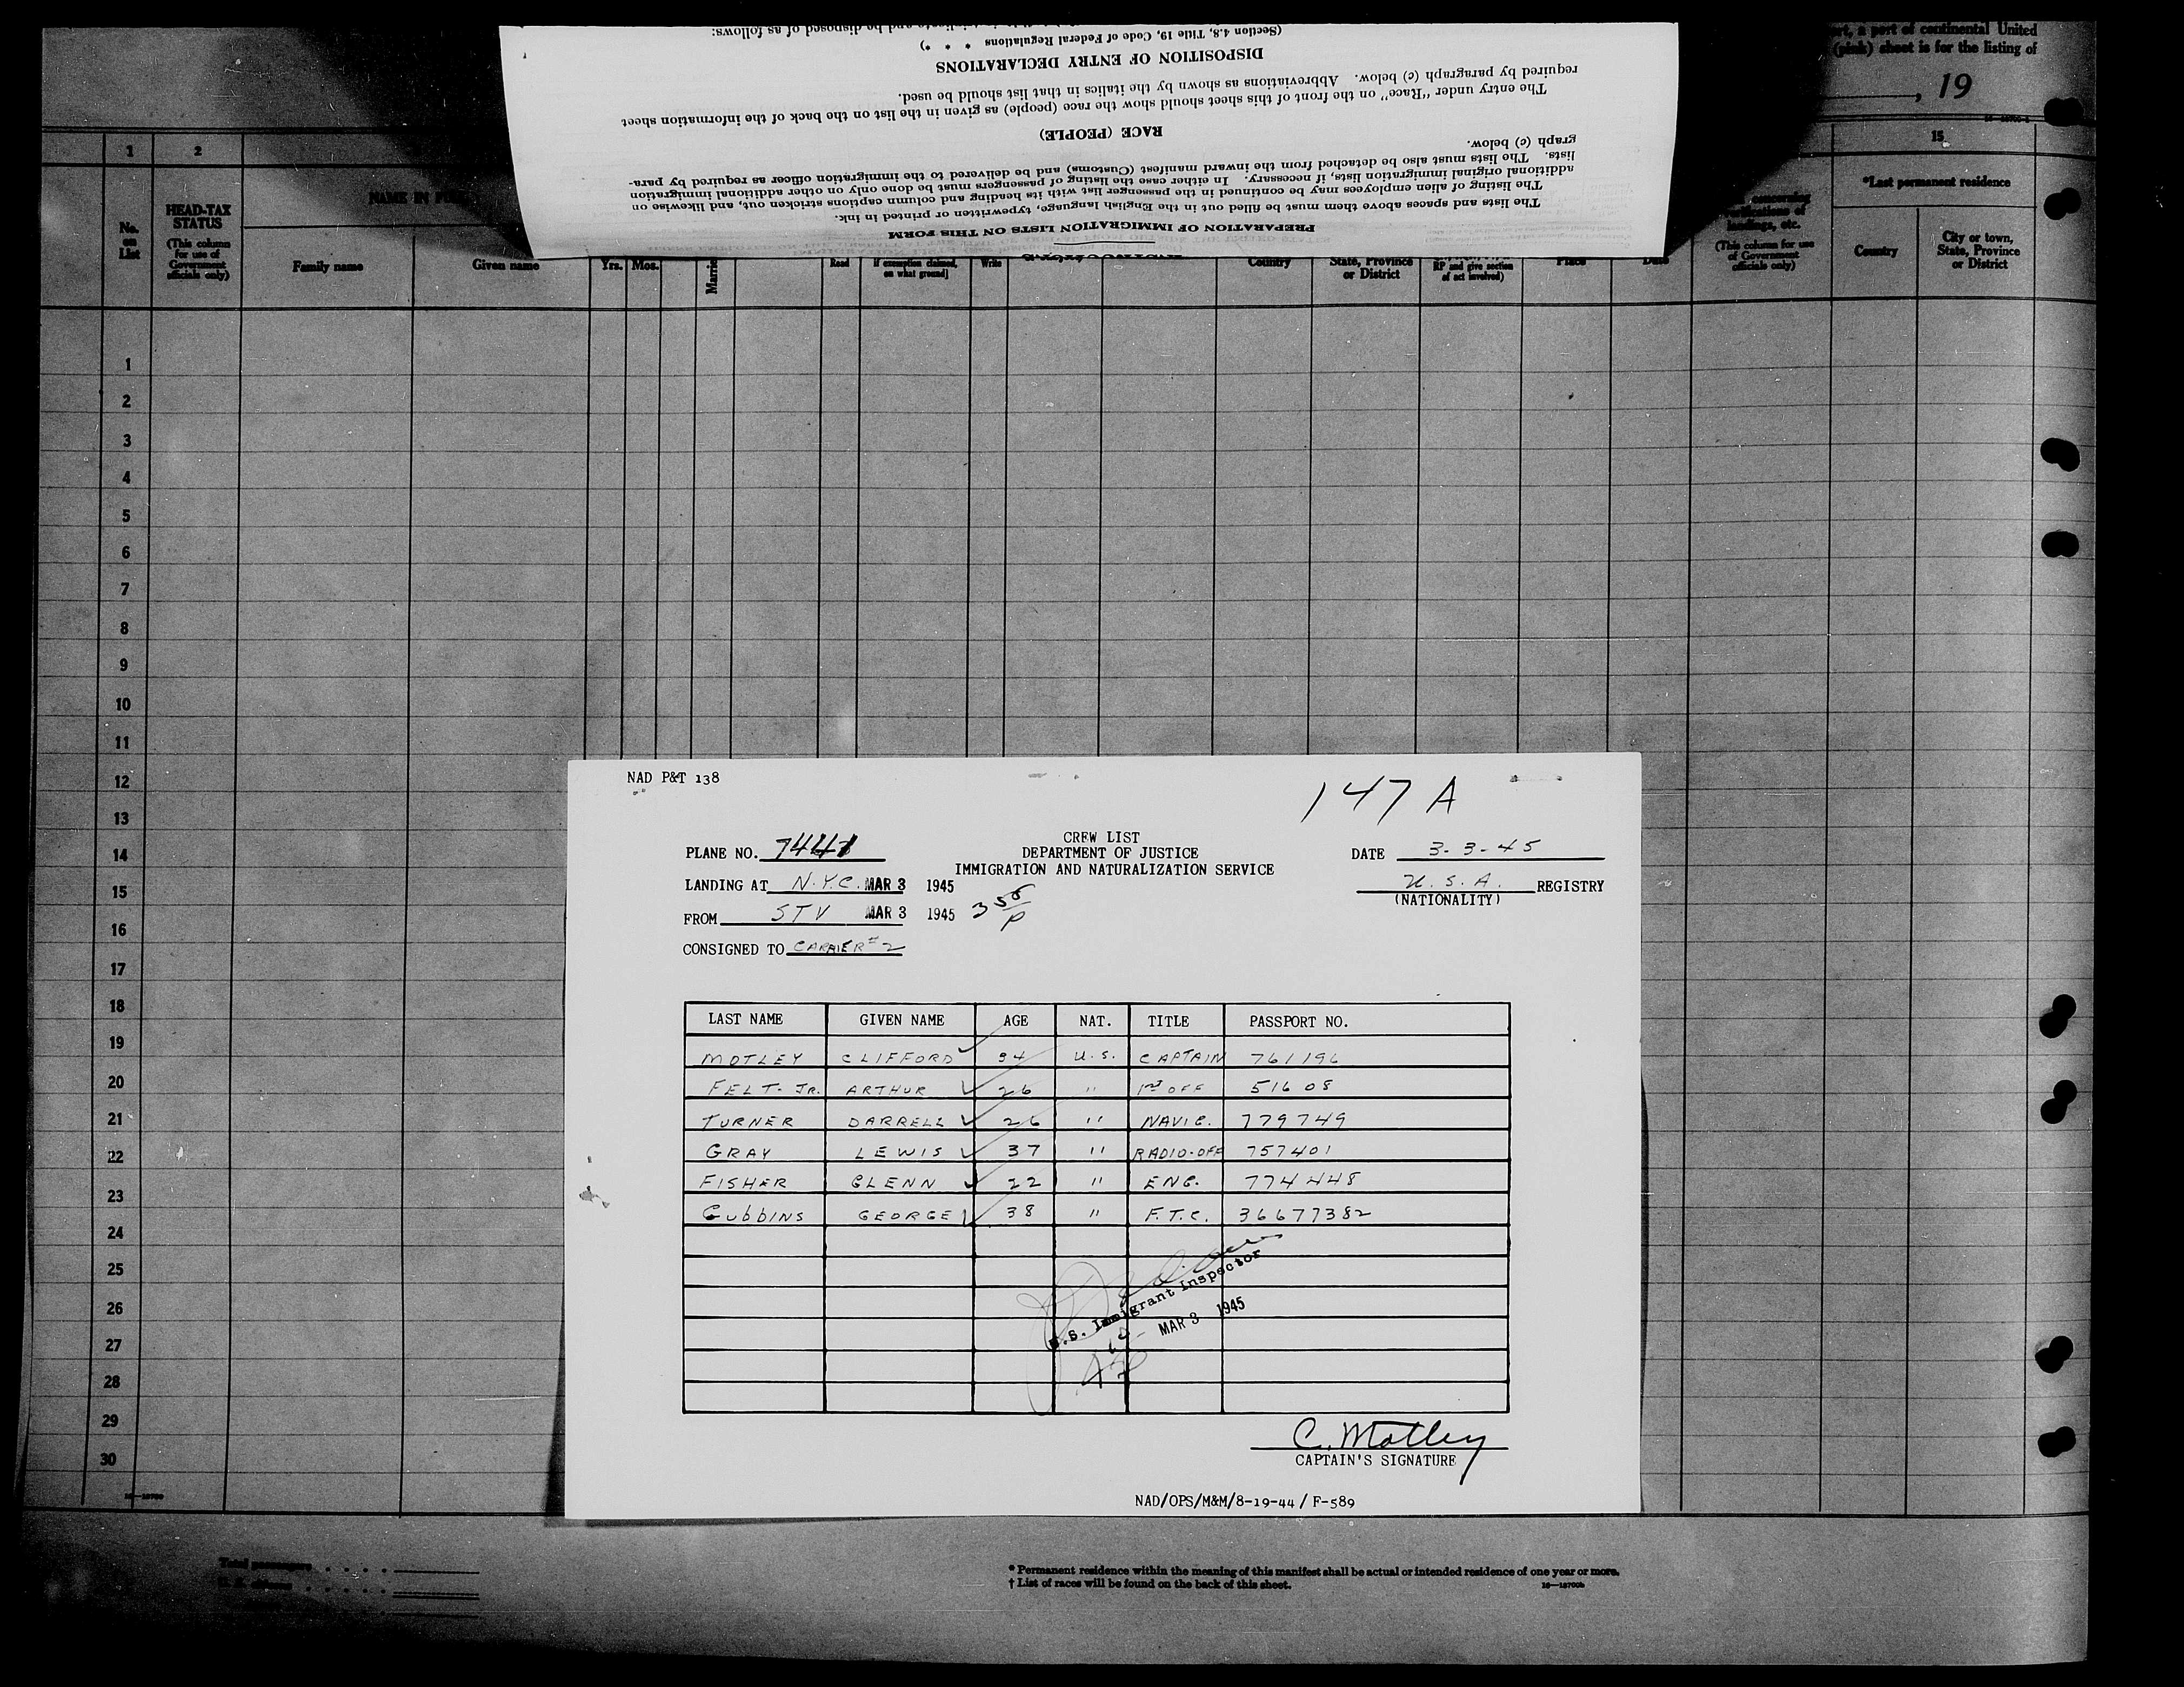 (Section 4.8, Title 19, Code of Federal Regulations * * *)
DISPOSITION OF ENTRY DECLARATIONS
required by paragraph (c) below. Abbreviations as shown by the italics in that list should be used.
The entry under "Race" on the front of this sheet should show the race (people) as given in the list on the back of the information sheet
RACE (PEOPLE)
graph (c) below.
lists. The lists must also be detached from the inward manifest (Customs) and be delivered to the immigration officer as required by para-
additional original immigration lists, if necessary. In either case the listing of passengers must be done only on other additional immigration
The listing of alien employees may be continued in the passenger list with its heading and column captions stricken out, and likewise on
The lists and spaces above them must be filled out in the English language, typewritten or printed in ink.
PREPARATION OF IMMIGRATION LISTS ON THIS FORM
rt, a port of continental United
(pink) sheet is for the listing of
, 19
1 2 15
No. on List
HEAD-TAX STATUS
(This column for use of Government officials only)
NAME IN
Family name Given name Yrs. Mos. Read if exemption claimed, on what ground] Write Country State, Province or District RP and give section of act involved) Place Date
landings, etc.
(This column for use of Government officials only)
*Last permanent residence
Country
City or town, State, Province or District
1
2
3
4
5
6
7
8
9
10
11
12
13
14
15
16
17
18
19
20
21
22
23
24
25
26
27
28
29
30
NAD P&T 138
147 A
CREW LIST
DEPARTMENT OF JUSTICE
IMMIGRATION AND NATURALIZATION SERVICE
PLANE NO. 7441
DATE 3-3-45
LANDING AT N.Y.C. MAR 3 1945
U.S.A. REGISTRY
(NATIONALITY)
FROM STV MAR 3 1945
CONSIGNED TO CARRIER #2
LAST NAME GIVEN NAME AGE NAT. TITLE PASSPORT NO.
MOTLEY CLIFFORD 34 U.S. CAPTAIN 761196
FELT. JR. ARTHUR 26 " 1st OFF 51608
TURNER DARRELL 26 " NAVIG. 779749
GRAY LEWIS 37 " RADIO-OFF 757401
FISHER GLENN 22 " ENG. 774448
GUbbINS GEORGE 38 " F.T.C. 36677382
U.S. Immigrant Inspector
MAR 3 1945
C. Motley
CAPTAIN'S SIGNATURE
NAD/OPS/M&M/8-19-44/F-589
Total passengers
* Permanent residence within the meaning of this manifest shall be actual or intended residence of one year or more.
† List of races will be found on the back of this sheet.